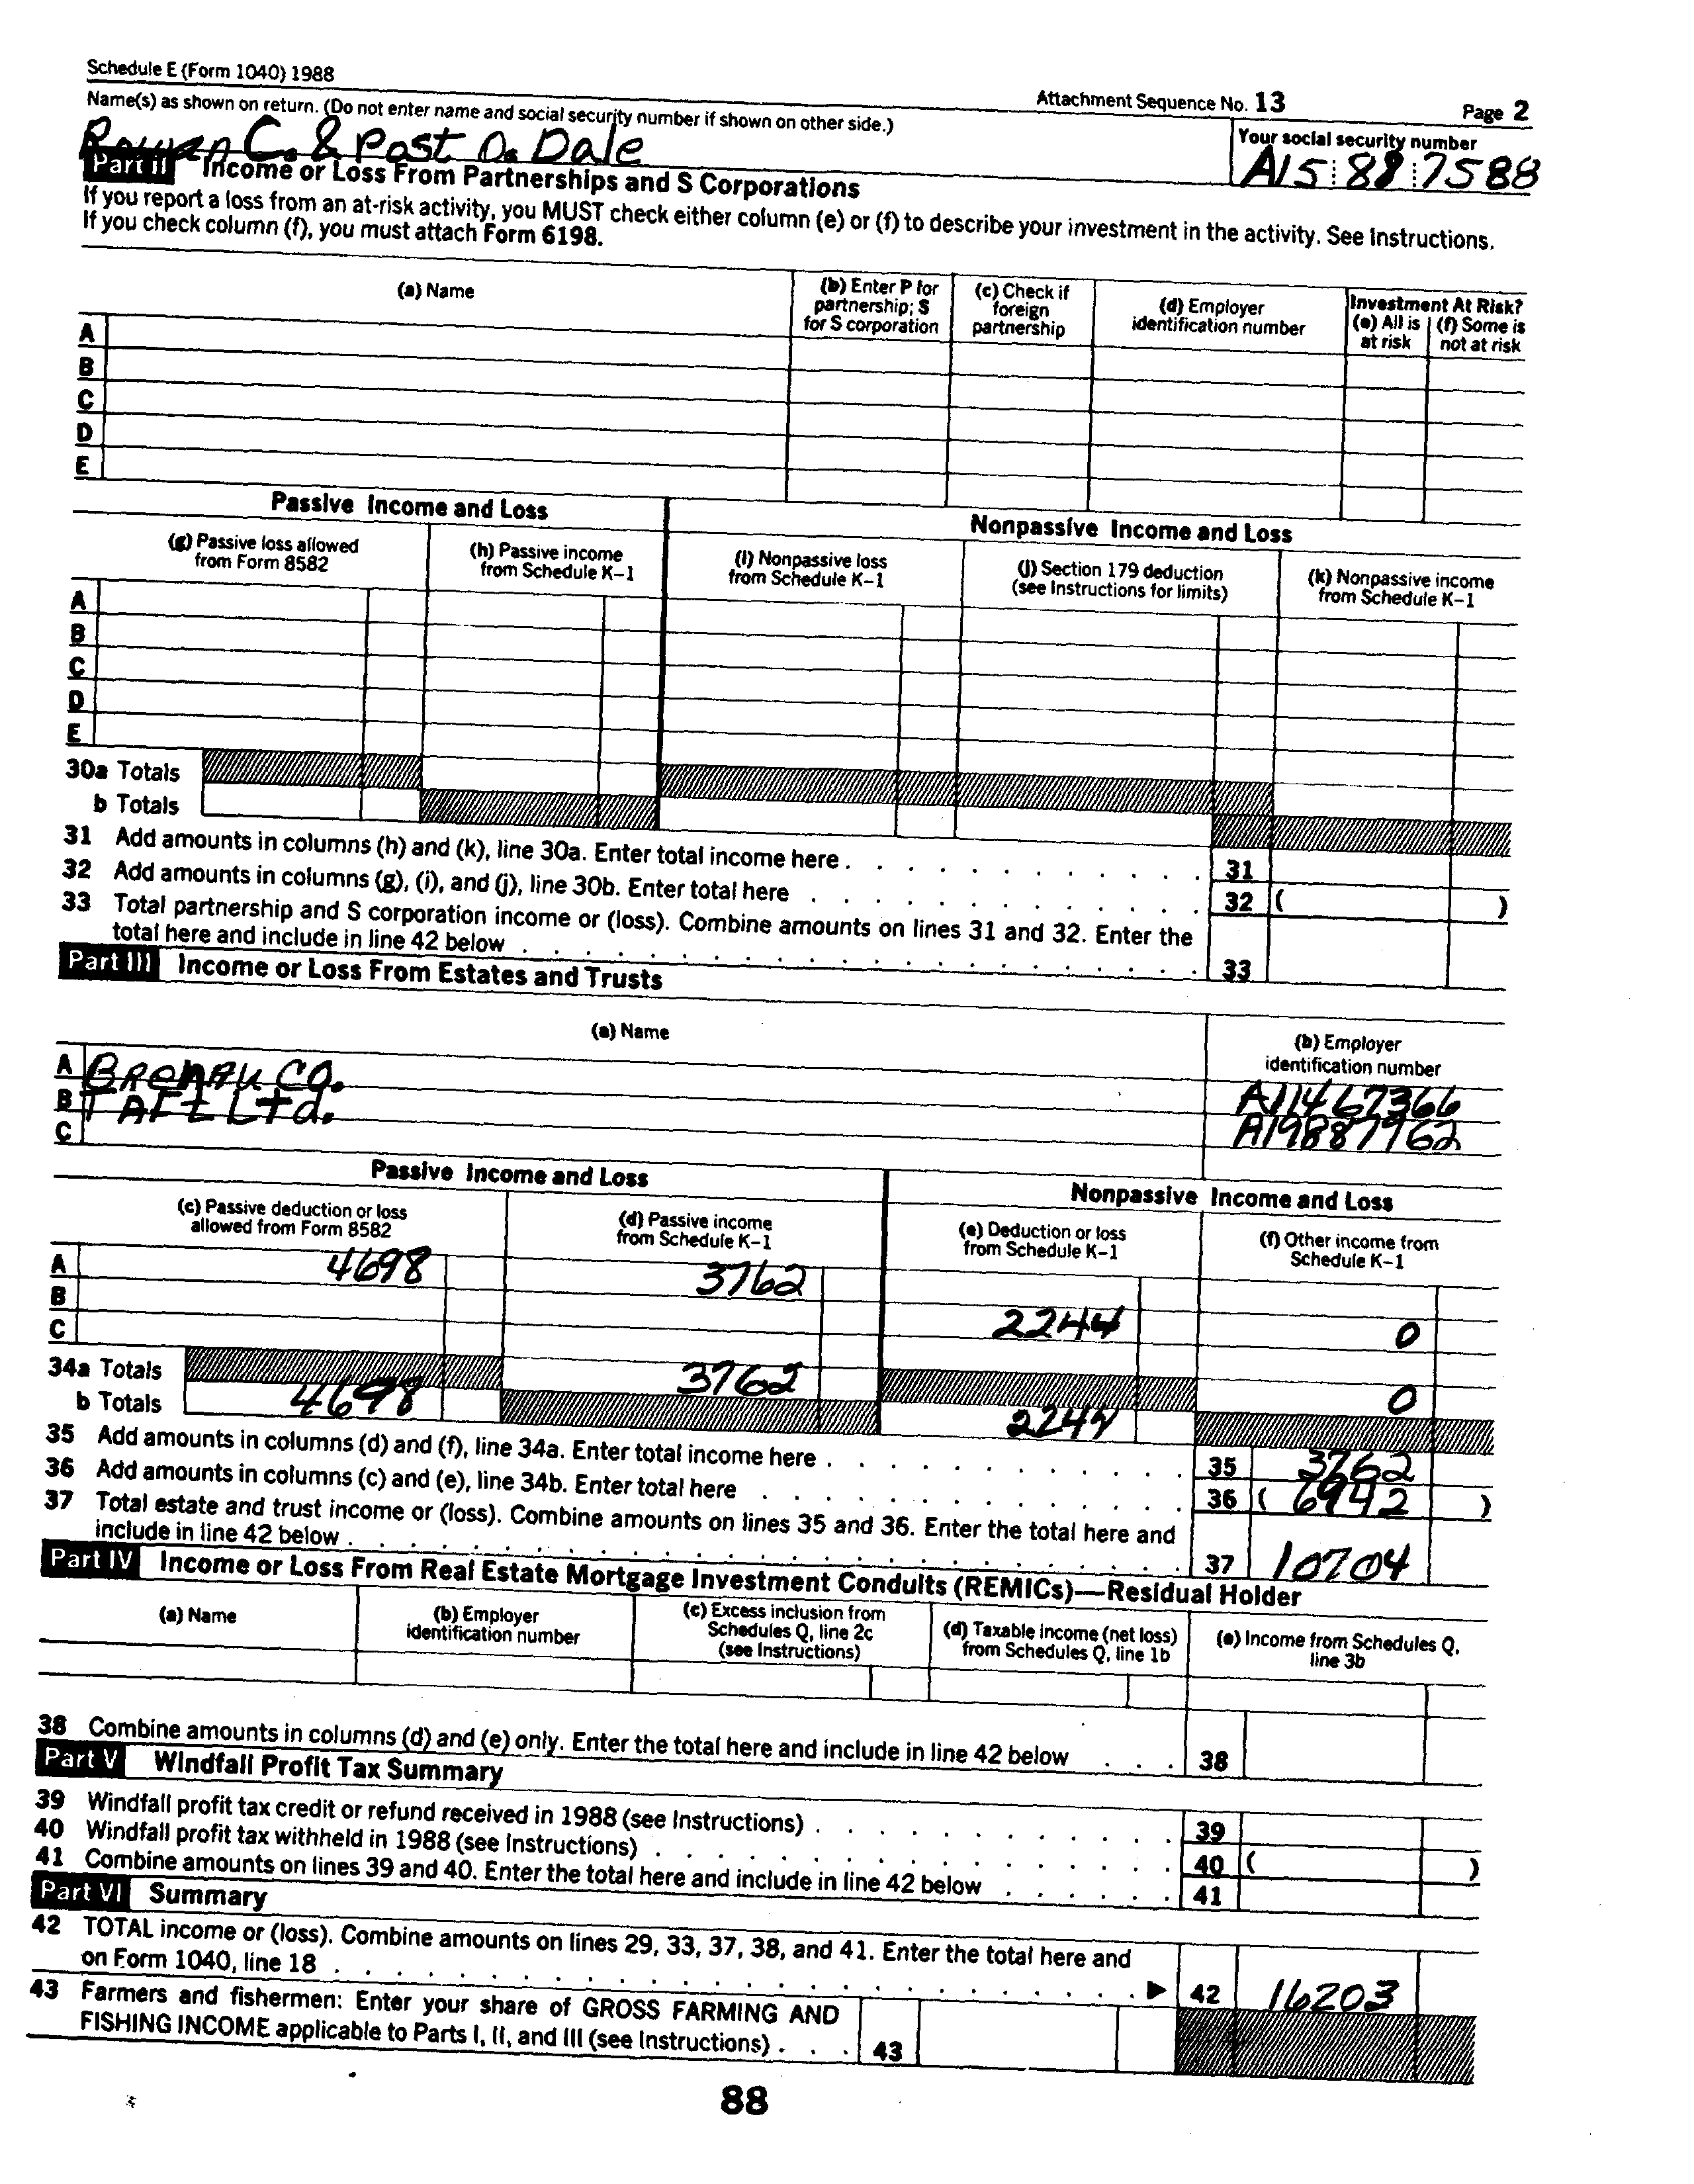 Schedule E (Form 1040) 1988
Attachment Sequence No. 13 Page 2
Name(s) as shown on return. (Do not enter name and social security number if shown on other side.)
Your social security number
C. & Post D. Dale
A15 88 7588
Part II Income or Loss From Partnerships and S Corporations
If you report a loss from an at-risk activity, you MUST check either column (e) or (f) to describe your investment in the activity. See Instructions.
If you check column (f), you must attach Form 6198.
(a) Name
(b) Enter P for partnership; S for S corporation
(c) Check if foreign partnership
(d) Employer identification number
Investment At Risk?
(e) All is at risk
(f) Some is not at risk
A
B
C
D
E
Passive Income and Loss
Nonpassive Income and Loss
(g) Passive loss allowed from Form 8582
(h) Passive income from Schedule K–1
(i) Nonpassive loss from Schedule K–1
(j) Section 179 deduction (see Instructions for limits)
(k) Nonpassive income from Schedule K–1
A
B
C
D
E
30a Totals
b Totals
31 Add amounts in columns (h) and (k), line 30a. Enter total income here . 31
32 Add amounts in columns (g), (i), and (j), line 30b. Enter total here . 32 ( )
33 Total partnership and S corporation income or (loss). Combine amounts on lines 31 and 32. Enter the
total here and include in line 42 below . 33
Part III Income or Loss From Estates and Trusts
(a) Name
(b) Employer identification number
A Brenau Co. A11467366
B Taft Ltd. A19887962
C
Passive Income and Loss
Nonpassive Income and Loss
(c) Passive deduction or loss allowed from Form 8582
(d) Passive income from Schedule K–1
(e) Deduction or loss from Schedule K–1
(f) Other income from Schedule K–1
A 4698 3762
B 2244 0
C
34a Totals 3762 0
b Totals 4698 2244
35 Add amounts in columns (d) and (f), line 34a. Enter total income here . 35 3762
36 Add amounts in columns (c) and (e), line 34b. Enter total here . 36 ( 6942 )
37 Total estate and trust income or (loss). Combine amounts on lines 35 and 36. Enter the total here and
include in line 42 below . 37 10704
Part IV Income or Loss From Real Estate Mortgage Investment Conduits (REMICs)—Residual Holder
(a) Name
(b) Employer identification number
(c) Excess inclusion from Schedules Q, line 2c (see Instructions)
(d) Taxable income (net loss) from Schedules Q, line 1b
(e) Income from Schedules Q, line 3b
38 Combine amounts in columns (d) and (e) only. Enter the total here and include in line 42 below . 38
Part V Windfall Profit Tax Summary
39 Windfall profit tax credit or refund received in 1988 (see Instructions) . 39
40 Windfall profit tax withheld in 1988 (see Instructions) . 40 ( )
41 Combine amounts on lines 39 and 40. Enter the total here and include in line 42 below . 41
Part VI Summary
42 TOTAL income or (loss). Combine amounts on lines 29, 33, 37, 38, and 41. Enter the total here and
on Form 1040, line 18 . ▶ 42 16203
43 Farmers and fishermen: Enter your share of GROSS FARMING AND
FISHING INCOME applicable to Parts I, II, and III (see Instructions) . 43
88